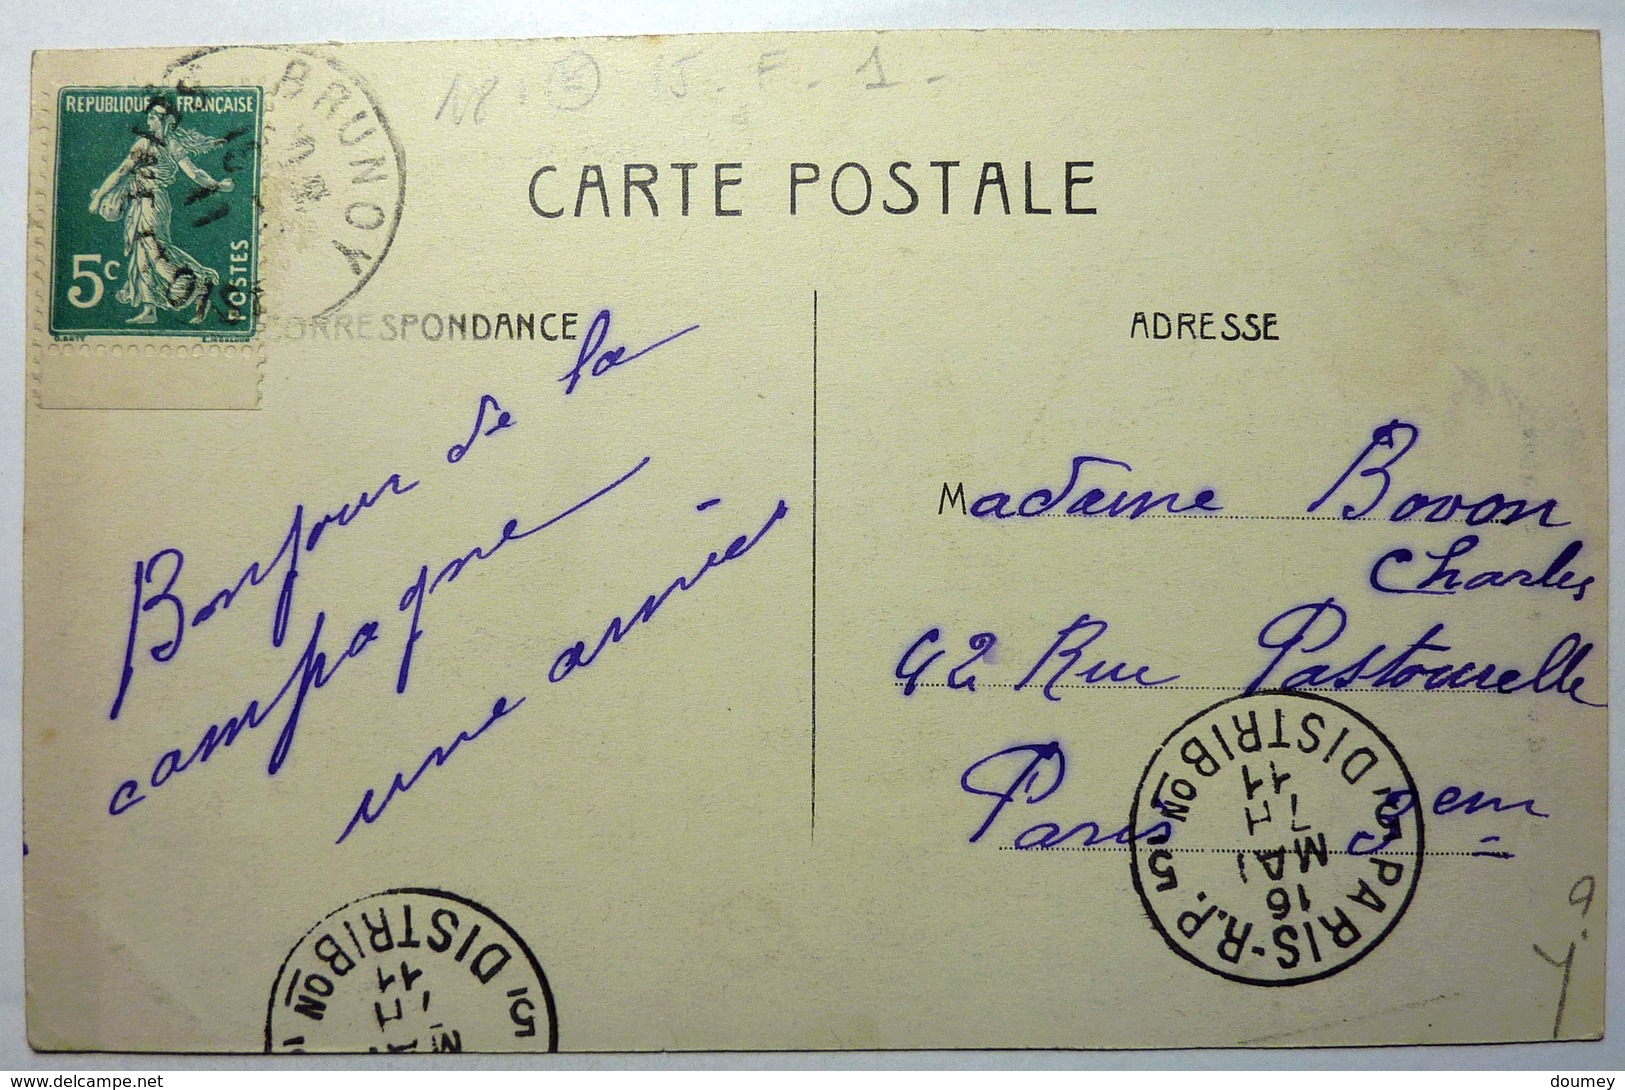 18. E 15 - F - 1 -
REPUBLIQUE FRANÇAISE
5c
POSTES
BRUNOY
CARTE POSTALE
CORRESPONDANCE
Bonjour de la
campagne
une amie
ADRESSE
Madame Bovon
Charles
42 Rue Pastourelle
Paris 3em
PARIS-R.P. 5
5, DISTRIBON
11
7
MAI
16
5, DISTRIBON
11
delcampe.net
doumey